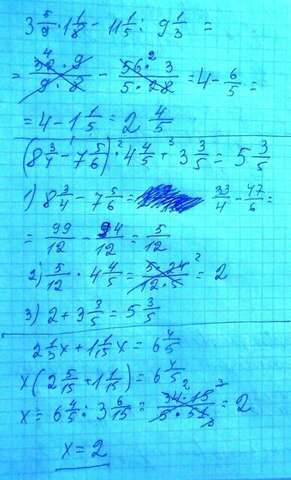 3 5/9 · 1 1/8 − 11 1/5 : 9 1/3 =
= 32 · 9 / 9 · 8 − 56 · 3 / 5 · 28 = 4 − 6/5 =
= 4 − 1 1/5 = 2 4/5
(8 3/4 − 7 5/6) · 4 4/5 + 3 3/5 = 5 3/5
1) 8 3/4 − 7 5/6 = 33/4 − 47/6 =
= 99/12 − 94/12 = 5/12
2) 5/12 · 4 4/5 = 5 · 24 / 12 · 5 = 2
3) 2 + 3 3/5 = 5 3/5
2 1/3 x + 1 1/15 x = 6 4/5
x (2 5/15 + 1 1/15) = 6 4/5
x = 6 4/5 : 3 6/15 = 34 · 15 / 5 · 51 = 2
x = 2